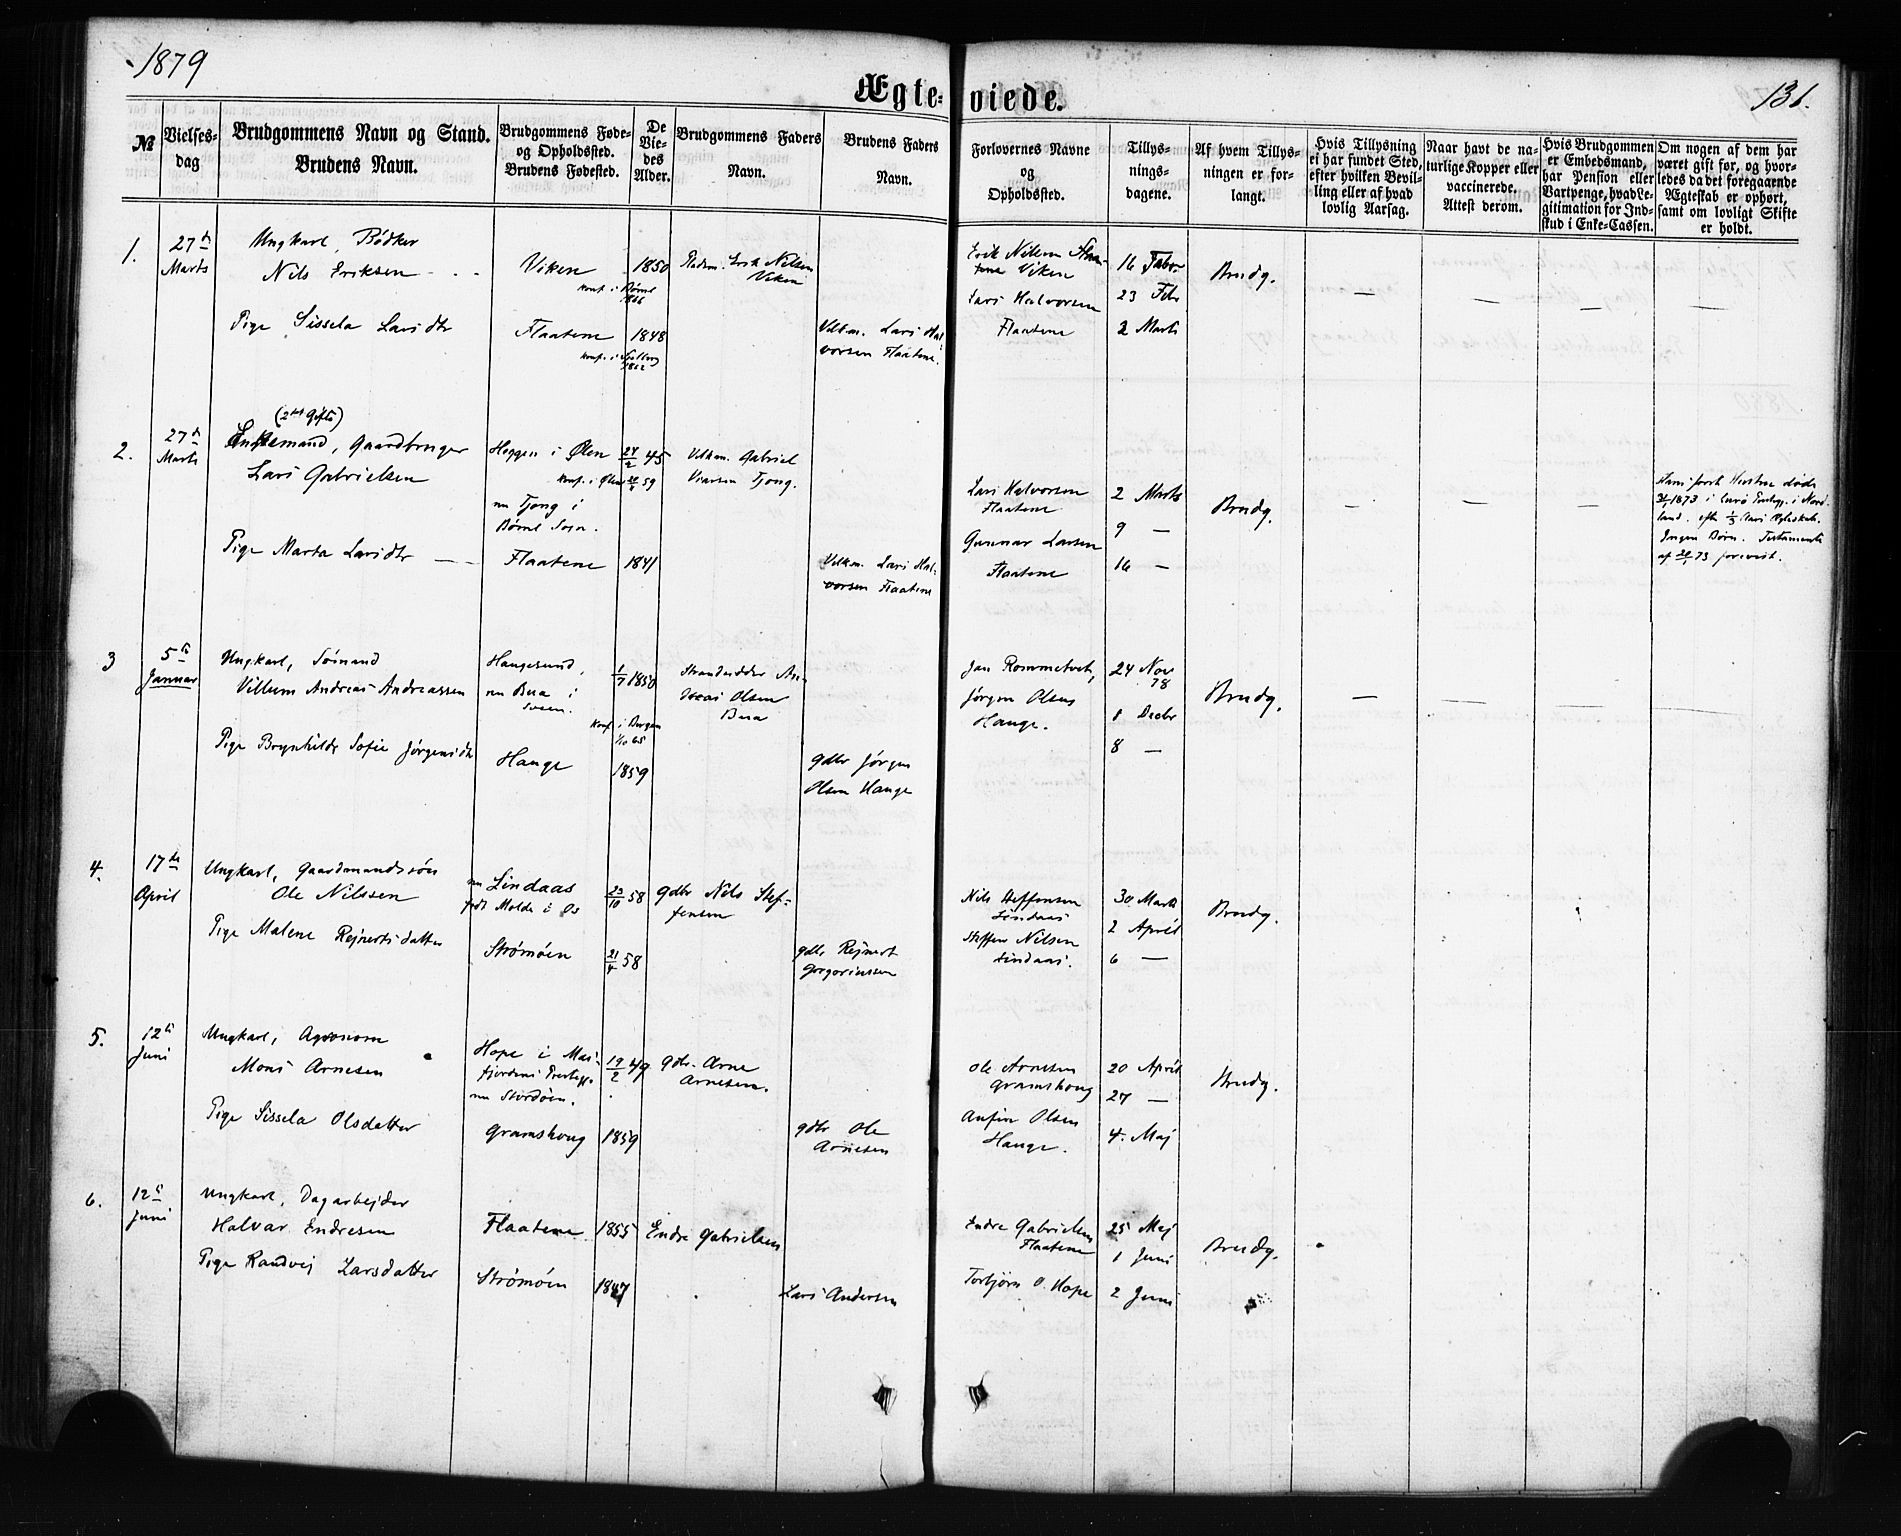 1879
Ægteviede.
131.
№
Vielsesdag
Brudgommens Navn og Stand.
Brudens Navn.
Brudgommens Føde- og Opholdssted.
Brudens Fødested.
De Viedes Alder.
Brudgommens Faders Navn.
Brudens Faders Navn.
Forlovernes Navne og Opholdssted.
Tillysningsdagene.
Af hvem Tillysningen er forlangt.
Hvis Tillysning ei har fundet Sted, efter hvilken Bevilling eller af hvad lovlig Aarsag.
Naar havt de naturlige Kopper eller vaccinerede. Attest derom.
Hvis Brudgommen er Embedsmand, har Pension eller Vartpenge, hvad Legitimation for Indskud i Enke-Cassen.
Om nogen af dem har været gift før, og hvorledes da det foregaaende Ægteskab er ophørt, samt om lovligt Skifte er holdt.
1.
27de
Marts
Ungkarl, Bødker
Nils Eriksen
Viken
1850
konf. i Bøml
1866
Erik Nilsen
Viken
Pige Sissela Larsdtr
Flaatene
1848
konf. i
1862
Lars Halvorsen Flaatene
Erik Nilsen
Viken
Lars Halvorsen
Flaatene
16 Febr
23 Feb
2 Marts
Brudg.
2.
27de
Marts
(2det Gifte)
Enkemand, Gaardbruger
Lars Gabrielsen
i Ølen
24/2 45
konf. i Ølen 59
nu Tjong i
Bømt Sogn.
Gabriel
Tjong.
Pige Marta Larsdtr
Flaatene
1841
Lars Halvorsen Flaatene
Lars Halvorsen
Flaatene
Gunnar Larsen
Flaatene
2 Marts
9 —
16 —
Brudg.
Hans første Hustru døde
1873 i Nordland. efter 1/3 Aars Ægteskab.
Ingen Børn. Testamente
af 73 forevist.
3
5te
Januar
Ungkarl, Sømand
Villum Andreas Andreassen
Haugesund,
nu Bua i
Sogn.
1/7 1850
konf. i Bergen
1/10 65
Strandsidder Andreas Olsen
Bua
Pige Brynhilde Sofie Jørgensdtr
Hauge
1859
gdbr Jørgen
Olsen Hauge
Jan Rommetveit,
Jørgen Olsen
Hauge.
24 Nov
78
1 Decbr
8 —
Brudg.
4.
17de
April
Ungkarl, Gaardmandssøn
Ole Nilssen
nu Lindaas
født Molde i Os
23/10 58
gdbr Nils Steffensen
Pige Malene Rejnertsdatter
Strømøen
21/4 58
gdbr Rejnert
Gregoriussen
Nils Steffensen
Lindaas
Steffen Nilsen
Lindaas.
30 Marts
2 April
6 —
Brudg.
5.
12te
Juni
Ungkarl, Agronom
Mons Arnesen
Hope i Masfjordens Prestegj.
nu Stordøen.
19/2 49
gdbr. Arne
Arnesen.
Pige Sissela Olsdatter
Gramshoug
1859
gdbr Ole
Arnesen
Ole Arnesen
Gramshoug
Anfin Olsen
Hauge.
20 April
27 —
4. Maj
Brudg.
6.
12te
Juni
Ungkarl, Dagarbejder
Halvar Endresen
Flaatene
1855
Endre Gabrielsen
Pige Randvej Larsdatter
Strømøen
1847
Lars Andersen
Endre Gabrielsen
Flaatene
Torbjørn O. Hope
25 Maj
1 Juni
2 Juni
Brudg.